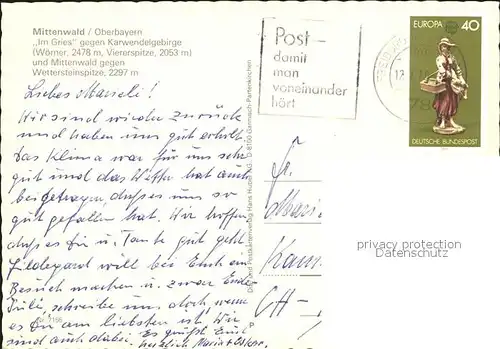 Mittenwald / Oberbayern
„Im Gries" gegen Karwendelgebirge
(Wörner, 2478 m, Viererspitze, 2053 m)
und Mittenwald gegen
Wettersteinspitze, 2297 m
Liebes Mareili!
Wir sind wieder zurück
und haben uns gut erholt.
Das Klima war für uns sehr
gut und das Wetter hat auch
beigetragen, daß es uns so
gut gefallen hat. Wir hoffen
daß es Dir u. Tante gut geht.
Hildegard will bei Euch ein
Besuch machen u. zwar Ende
Juli, schreibe uns doch, wenn
es Dir am liebsten ist. Wir
sind auch dabei. Es grüßt Euch
herzlich Maria + Oskar.
Post –
damit
man
voneinander
hört
EUROPA 40
DEUTSCHE BUNDESPOST
Fr.
CH-
privacy protection
Datenschutz